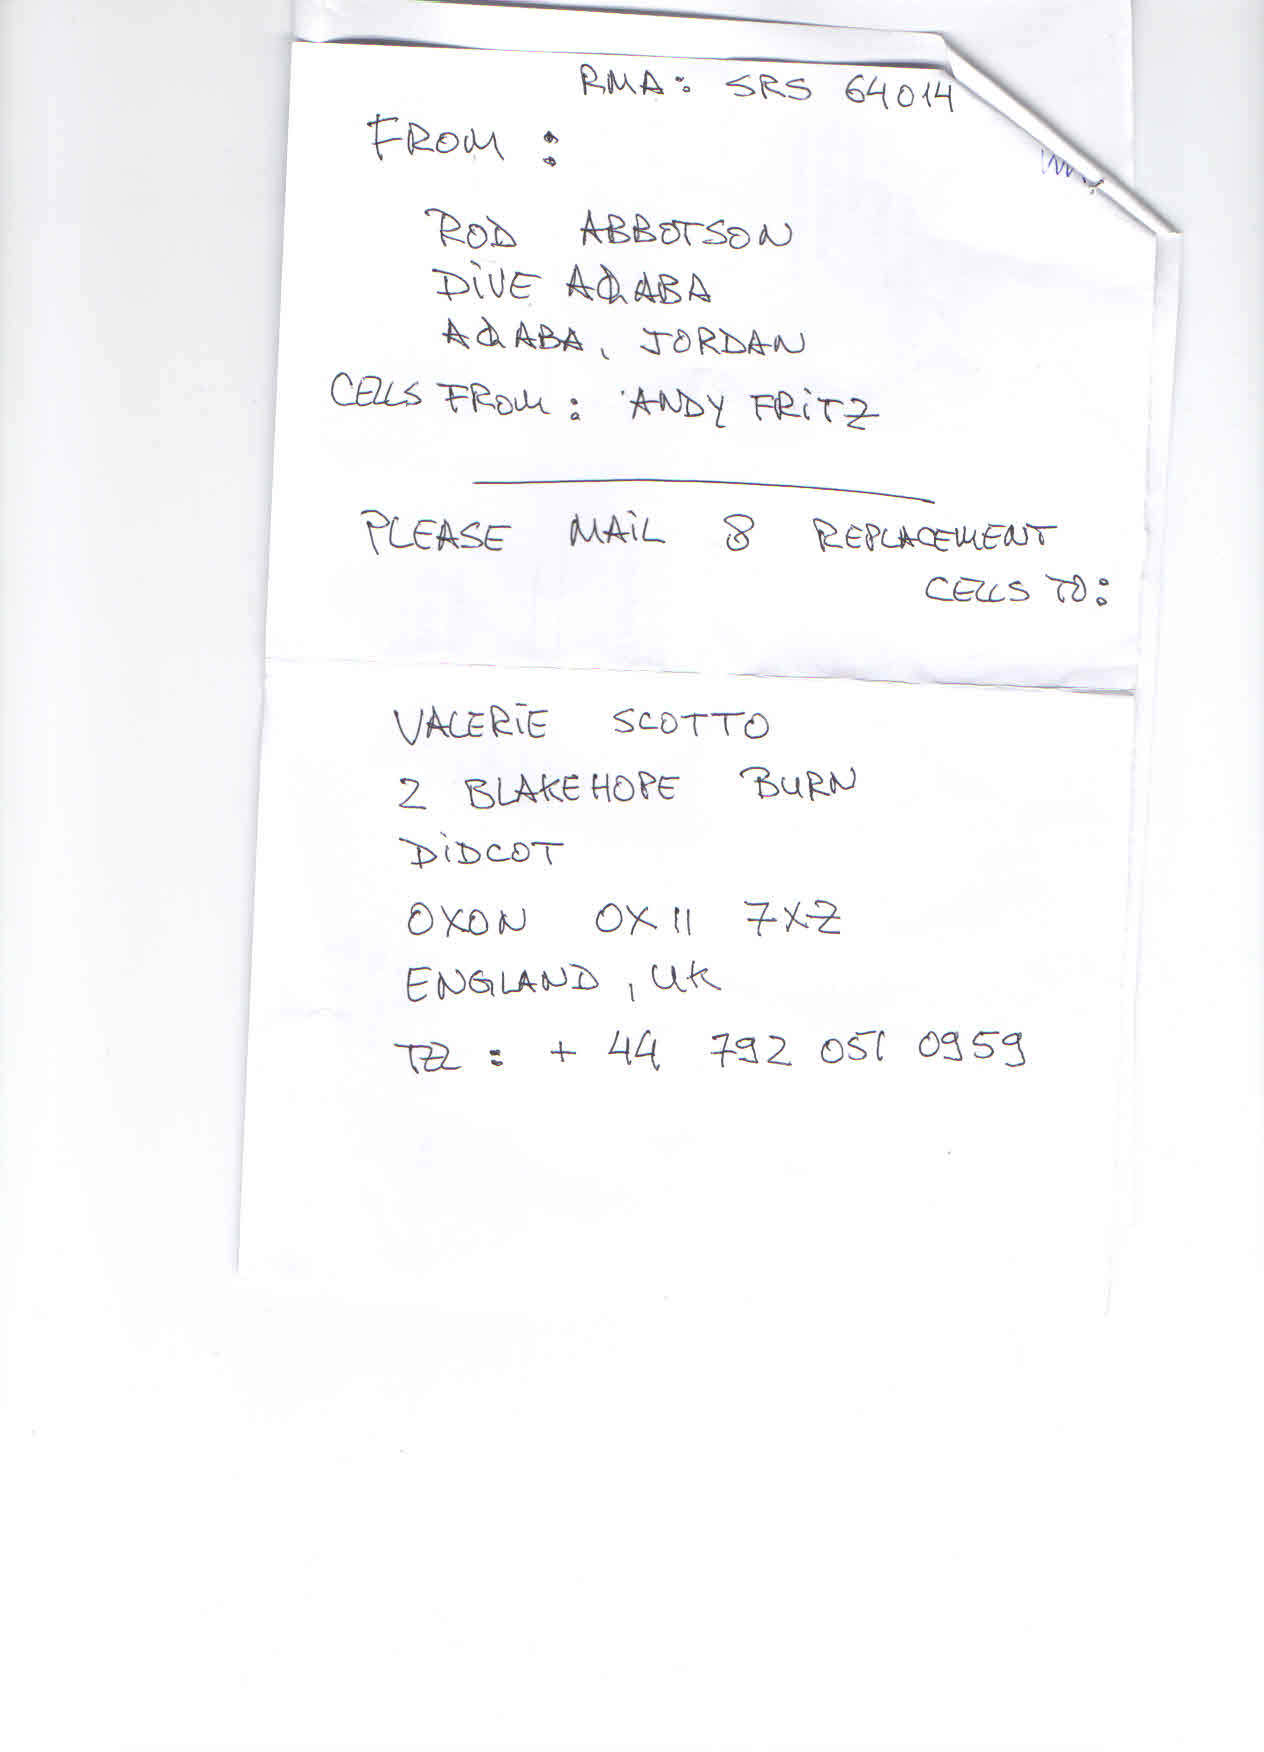 RMA: SRS 64014
FROM:
ROD ABBOTSON
DIVE AQABA
AQABA, JORDAN
CELLS FROM: ANDY FRITZ
PLEASE MAIL 8 REPLACEMENT
CELLS TO:
VALERIE SCOTTO
2 BLAKEHOPE BURN
DIDCOT
OXON OX11 7XZ
ENGLAND, UK
TEL: + 44 792 051 0959